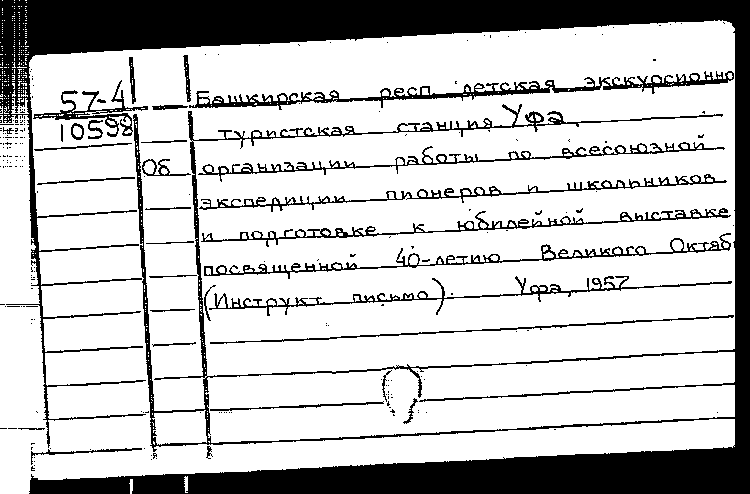 57-4 Башкирская респ. детская экскурсионно
10598 туристская станция Уфа.
Об организации работы по всесоюзной
экспедиции пионеров и школьников
и подготовке к юбилейной выставке
посвященной 40-летию Великого Октяб
(Инструкт. письмо). Уфа, 1957